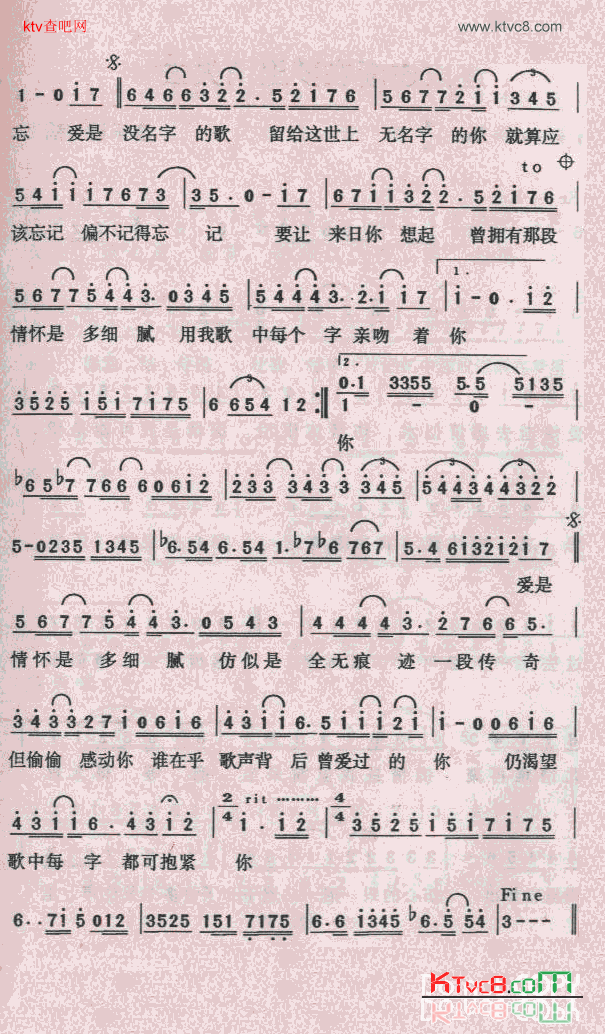 ktv查吧网 www.ktvc8.com
1 - 0 i 7 6 4 6 6 3 2 2 . 5 2 1 7 6 5 6 7 7 2 1 1 3 4 5
忘 爱是 没名字 的歌 留给这世上 无名字 的你 就算应
to
5 4 1 1 1 7 6 7 3 3 5 . 0 - 1 7 6 7 1 1 3 2 2 . 5 2 1 7 6
该忘记 偏不记得忘 记 要让 来日你 想起 曾拥有那段
1.
5 6 7 7 5 4 4 3 . 0 3 4 5 5 4 4 4 3 . . 2 . 1 1 7 1 - 0 . 1 2
情怀是 多细 腻 用我歌 中每个 字 亲吻 着 你
2.
0 . 1 3355 5 . 5 5135
3525 151 7175 6 654 12 : 1 - 0 -
你
b6 5 b7 7 6 6 6 0 6 1 2 2 3 3 3 4 3 3 3 4 5 5 4 4 3 4 4 3 2 2
5 - 0235 1345 b6 . 54 6 . 54 1 . b7 b6 767 5 . 4 6132121 7
爱是
5 6 7 7 5 4 4 3 . 0 5 4 3 4 4 4 4 3 . 2 7 6 6 5 .
情怀是 多细 腻 仿似是 全无痕 迹 一段传 奇
3 4 3 3 2 7 1 0 6 1 6 4 3 1 1 6 . 5 1 1 1 2 1 1 - 0 0 6 1 6
但偷偷 感动你 谁在乎 歌声背 后 曾爱过 的 你 仍渴望
2/4 rit ········· 4/4
4 3 1 1 6 . 4 3 1 2 1 . 1 2 3 5 2 5 1 5 1 7 1 7 5
歌中每 字 都可抱紧 你
Fine
6 . . 7 1 5 0 1 2 3525 151 7175 6 . 6 1345 b6 . 5 54 3 - - -
KTvc8.com